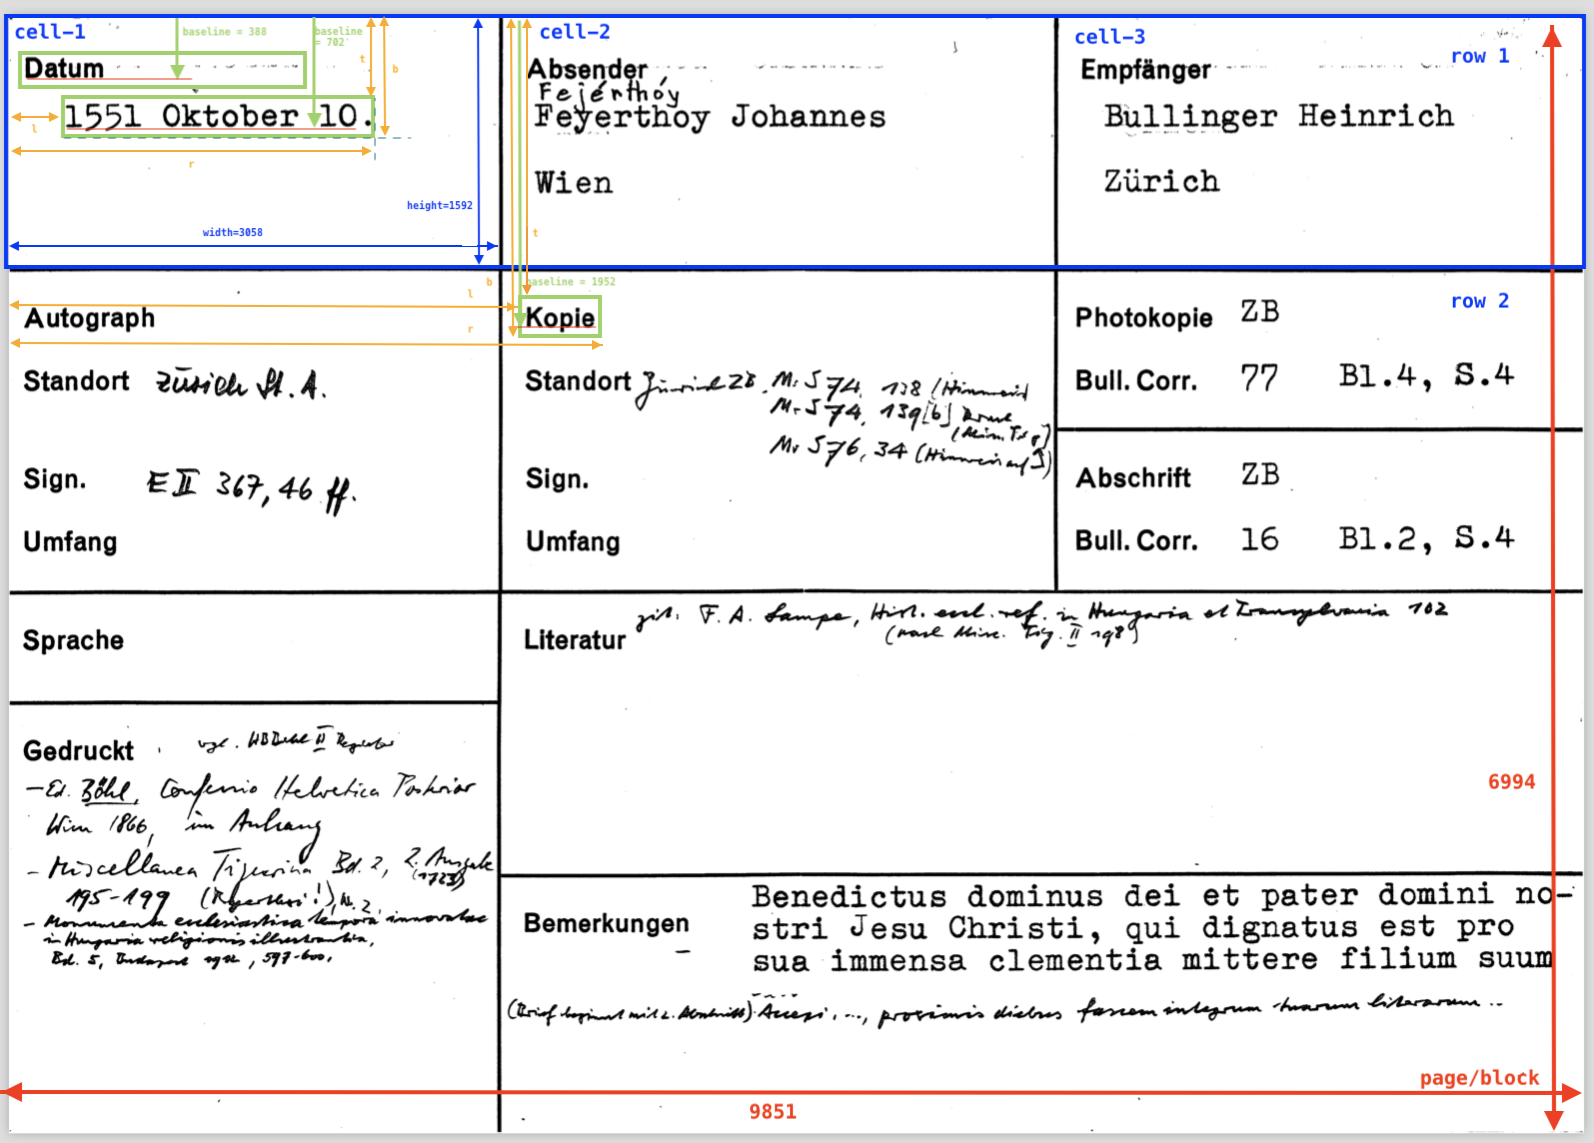 cell-1
baseline = 388
baseline = 702
t
b
Datum
1551 Oktober 10.
l
r
height=1592
width=3058
cell-2
Absender
Fejérthóy
Feyerthoy Johannes
Wien
t
cell-3
row 1
Empfänger
Bullinger Heinrich
Zürich
Autograph
Standort Zürich St. A.
Sign. E II 367, 46 ff.
Umfang
b
l
r
baseline = 1952
Kopie
Standort Zürich ZB. Ms S 74, 138 (Hinweis)
Ms S 74, 139[b]
Ms S 76, 34 (Hinweis auf
Sign.
Umfang
row 2
Photokopie ZB
Bull. Corr. 77 Bl.4, S.4
Abschrift ZB
Bull. Corr. 16 Bl.2, S.4
Sprache
Literatur zit. F. A. Lampe, Hist. eccl. ref. in Hungaria et Transylvania 102
(nach Misc. Tig. II 198)
Gedruckt vgl. HBBibl II Register
- Ed. Böhl, Confessio Helvetica Posterior
Wien 1866, im Anhang
- Miscellanea Tigurina Bd. 2, 2. Ausgabe
(1723)
195-199
- Monumenta ecclesiastica tempora innovatae
in Hungaria religionis illustrantia,
Bd. 5, Budapest 1912, 597-600.
6994
Bemerkungen
Benedictus dominus dei et pater domini no-
stri Jesu Christi, qui dignatus est pro
sua immensa clementia mittere filium suum
(Brief beginnt mit 2. Abschnitt) Accepi, ..., proximis diebus fascem integrum tuarum literarum ..
page/block
9851